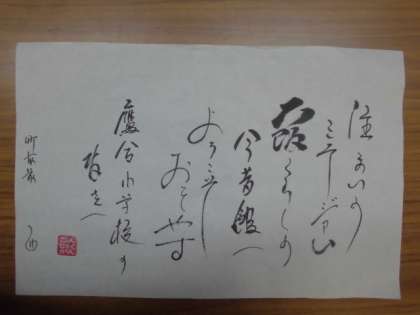 住まいの
ミュージアム
大阪くらしの
今昔館へ
ようこそ
おこしやす
鷹合小学校の
町家衆